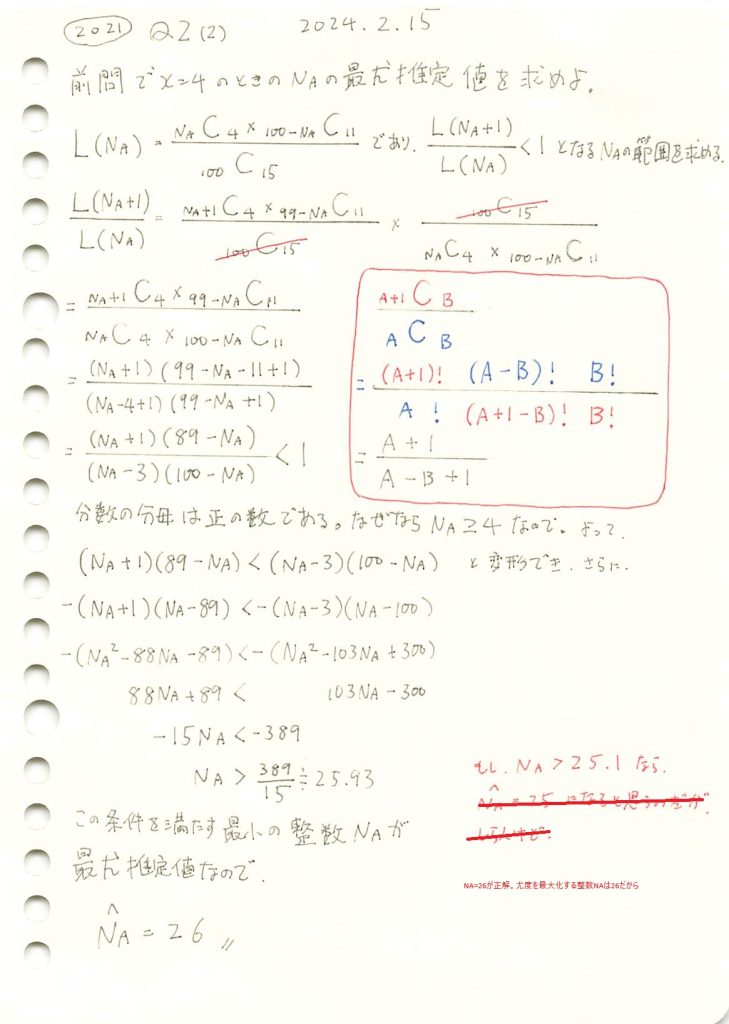 2021 Q2(2) 2024.2.15
前問でx=4のときのNAの最尤推定値を求めよ。
L(NA) = NAC4 × 100-NAC11 / 100C15 であり、L(NA+1) / L(NA) < 1 となるNAの範囲を求める。
L(NA+1) / L(NA) = NA+1C4 × 99-NAC11 / 100C15 × 100C15 / NAC4 × 100-NAC11
= NA+1C4 × 99-NAC11 / NAC4 × 100-NAC11
= (NA+1)(99-NA-11+1) / (NA-4+1)(99-NA+1)
= (NA+1)(89-NA) / (NA-3)(100-NA) < 1
A+1CB / ACB
= (A+1)! (A-B)! B! / A! (A+1-B)! B!
= A+1 / A-B+1
分数の分母は正の数である。なぜなら NA≥4 なので。よって、
(NA+1)(89-NA) < (NA-3)(100-NA) と変形でき、さらに、
-(NA+1)(NA-89) < -(NA-3)(NA-100)
-(NA²-88NA-89) < -(NA²-103NA+300)
88NA+89 < 103NA-300
-15NA < -389
NA > 389/15 ≒ 25.93
この条件を満たす最小の整数NAが
最尤推定値なので、
N̂A = 26 〃
もし、NA > 25.1 なら、
N̂A = 25 になると思うのだが、
しらんけど。
NA=26が正解。尤度を最大化する整数NAは26だから